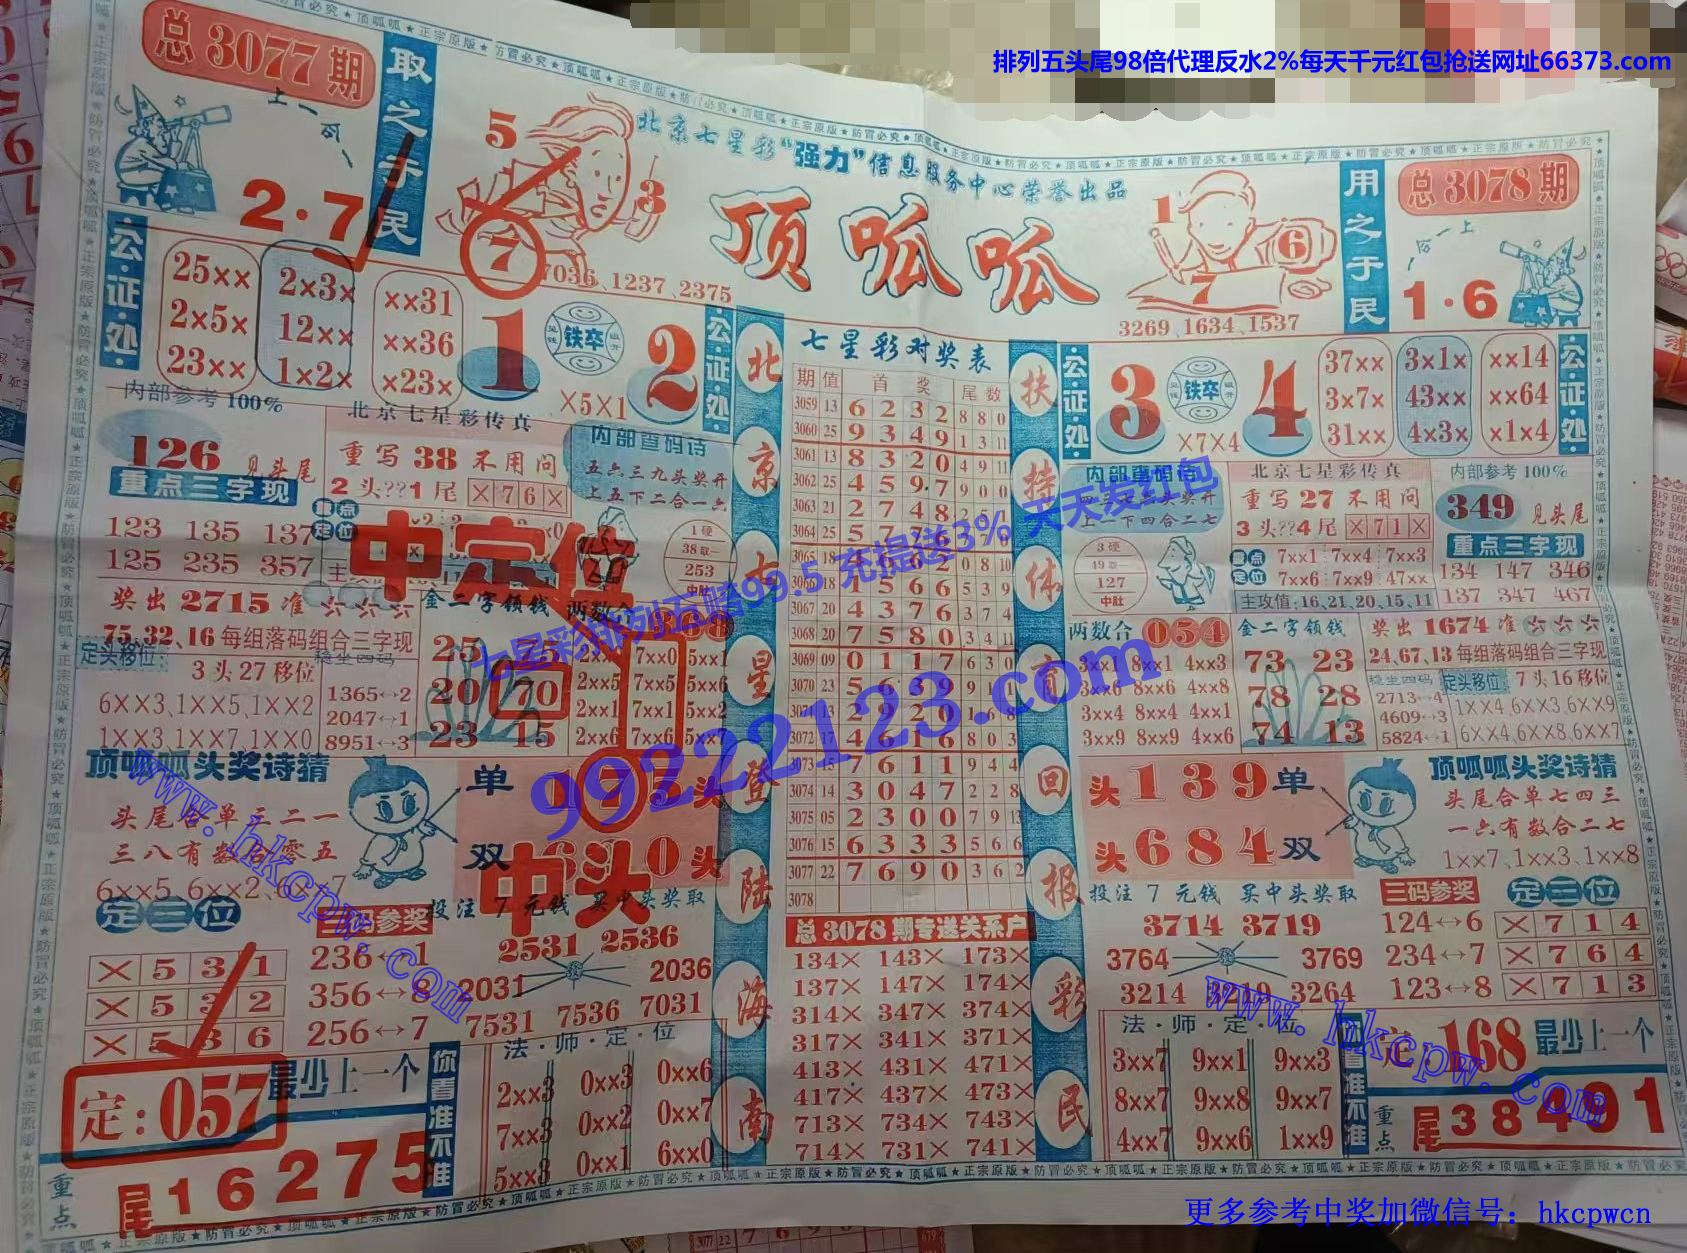 排列五头尾98倍代理反水2%每天千元红包抢送网址66373.com
总3077期
取之于民
2·7
5
3
7
7036、1237、2375
北京七星彩“强力”信息服务中心荣誉出品
顶呱呱
1
6
7
3269、1634、1537
用之于民
总3078期
1·6
公·证·处·
25×× 2×3× ××31
2×5× 12×× ××36
23×× 1×2× ×23×
1 铁卒 2
×5×1
公·证·处·
七星彩对奖表
期 值 首 奖 尾 数
3059 13 6 2 3 2 8 8 0
3060 25 9 3 4 9 1 3 11
3061 13 8 3 2 0 4 9 11
3062 25 4 5 9 7 9 0 0
3063 21 2 7 4 8
3064 25
3065 18
3067 20 4 3 7 6 3 7 4
3068 20 7 5 8 0 3 4 11
3069 09 0 1 1 7 6 3 0
3070 23 5 6 3 9
3072 17 4 6 1 6 8 0 3
3073 15 7 6 1 1 9 4 4
3074 14 3 0 4 7 2 2 8
3075 05 2 3 0 0 7 9 13
3076 15 6 3 3 3 5 6 6
3077 22 7 6 9 0 3 6 2
3078
总3078期专送关系户
134× 143× 173×
137× 147× 174×
314× 347× 374×
317× 341× 371×
413× 431× 471×
417× 437× 473×
713× 734× 743×
714× 731× 741×
北京七星登陆海南
扶持体育回报彩民
公·证·处·
3 铁卒 4
×7×4
37×× 3×1× ××14
3×7× 43×× ××64
31×× 4×3× ×1×4
公·证·处·
内部参考100%
126 见头尾
重点三字现
123 135 137
125 235 357
北京七星彩传真
重写38不用问
2头??1尾 ×76×
内部查码诗
五六三九头奖开
上五下二合一六
重点定位
中定位
1硬
38取一
253
中肚
奖出2715准
75,32,16每组落码组合三字现
定头移位:
3头27移位
6××3、1××5、1××2
1××3、1××7、1××0
稳坐四码
1365↔2
2047↔1
8951↔3
金二字领钱
25 75
20 70
23 15
两数合 368
2××5 7××5 5××6
2××1 7××1 5××2
2××6 7××6 5××7
顶呱呱头奖诗猜
头尾合单三二一
三八有数合零五
6××5、6××2、6××7
单
双
中头
投注7元钱 买中头奖取
定三位
×531
×532
×536
三码参奖
236↔1
356↔8
256↔7
2531 2536
2031 2036
7531 7536 7031
定:057
最少上一个
重点
尾16275
你看准不准
法·师·定·位
2××3 0××3 0××6
7××3 0××2 0××7
5××3 0××1 6××0
内部查码诗
四三七二头奖开
上一下四合二七
北京七星彩传真
重写27不用问
3头??4尾 ×71×
内部参考100%
349 见头尾
重点三字现
134 147 346
137 347 467
3硬
19取一
127
中肚
重点定位
7××1 7××4 7××3
7××6 7××9 47××
主攻值:16,21,20,15,11
两数合 054
3××1 8××1 4××3
3××6 8××6 4××8
3××4 8××4 4××1
3××9 8××9 4××6
金二字领钱
73 23
78 28
74 13
奖出1674准
24,67,13每组落码组合三字现
稳坐四码
2713↔4
4609↔3
5824↔1
定头移位:
7头16移位
1××4、6××3、6××9
6××4、6××8、6××7
头139单
头684双
投注7元钱 买中头奖取
顶呱呱头奖诗猜
头尾合单七四三
一六有数合二七
1××7、1××3、1××8
3714 3719
3764 3769
3214 3219 3264
三码参奖
124↔6
234↔7
123↔8
定三位
×714
×764
×713
法·师·定·位
3××7 9××1 9××3
8××7 9××8 9××7
4××7 9××6 1××9
你看准不准
定:168
最少上一个
重点
尾38491
七星彩排列五赔99.5 充提送3% 天天发红包
99222123.com
www.hkcpw.com
www.hkcpw.com
更多参考中奖加微信号：hkcpwcn